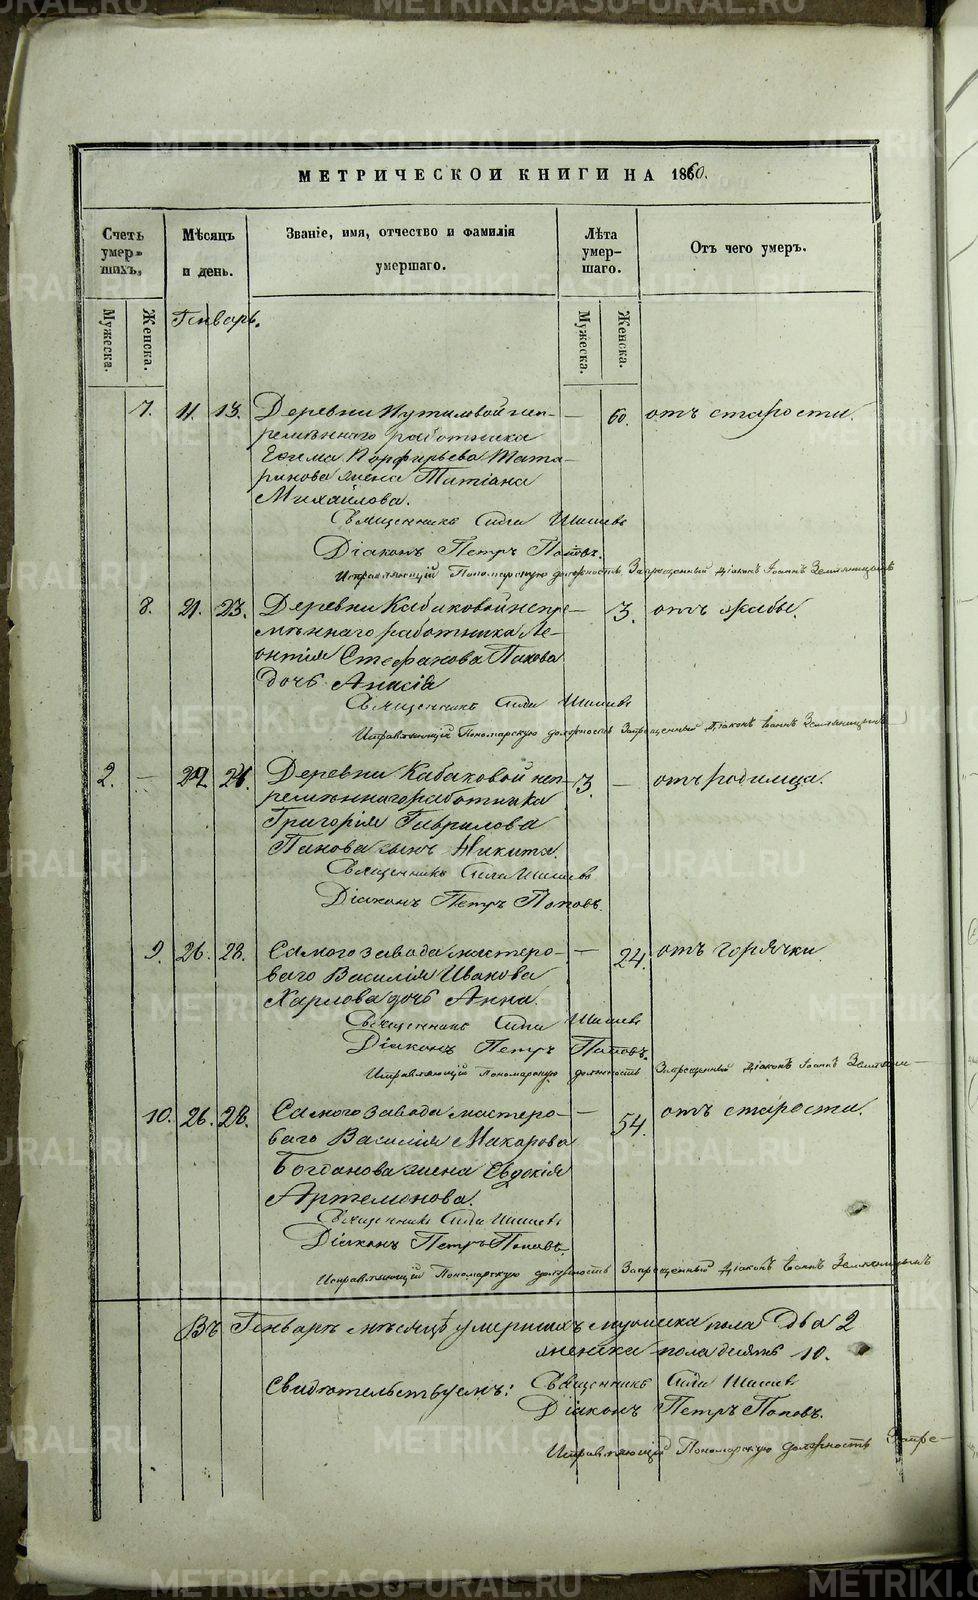 МЕТРИЧЕСКОЙ КНИГИ НА 1860.
Счетъ умер-шихъ,
Мѣсяцъ и день.
Званіе, имя, отчество и фамилія умершаго.
Лѣта умер-шаго.
Отъ чего умеръ.
Мужеска.
Женска.
Генварь.
Мужеска.
Женска.
7. 11. 13. Деревни Путиловой неп- — 60. отъ старости.
ремѣннаго работника
Ефима Порфирьева Тата-
ринова жена Татіана
Михайлова.
Священникъ Сила Шишевъ
Діаконъ Петръ Поповъ.
Исправляющій Пономарскую должность Запрещенный Діаконъ Іоаннъ Земляницынъ
8. 21. 23. Деревни Кабаковой непре- — 3. отъ жабы.
мѣннаго работника Ле-
онтія Стефанова Панова
дочь
Священникъ Сила Шишевъ
Исправляющій Пономарскую должность Запрещенный Діаконъ Іоаннъ Земляницынъ
2. — Деревни Кабаковой неп- 3. — отъ родимца.
ремѣннаго работника
Григорія Гаврилова
Панова сынъ Никита.
Священникъ Сила Шишевъ
Діаконъ Петръ Поповъ.
9. 26. 28. Самого завода мастеро- — 24. отъ горячки.
ваго Василія Иванова
Харлова дочь Анна.
Священникъ Сила Шишевъ
Діаконъ Петръ Поповъ.
Исправляющій Пономарскую должность Запрещенный Діаконъ Іоаннъ
10. 26. 28. Самого завода мастеро- — 54. отъ старости.
ваго Василія Макарова
Богданова жена Евдокія
Артемонова.
Священникъ Сила Шишевъ
Діаконъ Петръ Поповъ.
Исправляющій Пономарскую должность Запрещенный Діаконъ Іоаннъ Земляницынъ
Въ Генварѣ мѣсяцѣ умершихъ мужеска пола два 2
женска пола десять 10.
Свидѣтельствуемъ: Священникъ Сила Шишевъ
Діаконъ Петръ Поповъ.
Исправляющій Пономарскую должность Запре-
METRIKI.GASO-URAL.RU